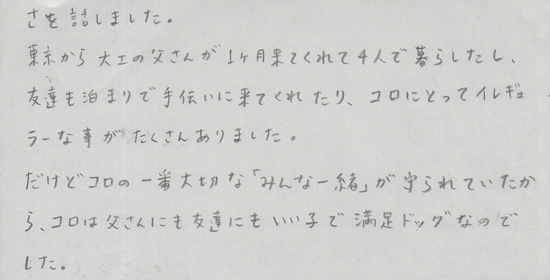 さを話しました。
東京から大工の父さんが1ヶ月来てくれて4人で暮らしたし、
友達も泊まりで手伝いに来てくれたり、コロにとってイレギュ
ラーな事がたくさんありました。
だけどコロの一番大切な「みんな一緒」が守られていたか
ら、コロは父さんにも友達にもいい子で満足ドッグなので
した。